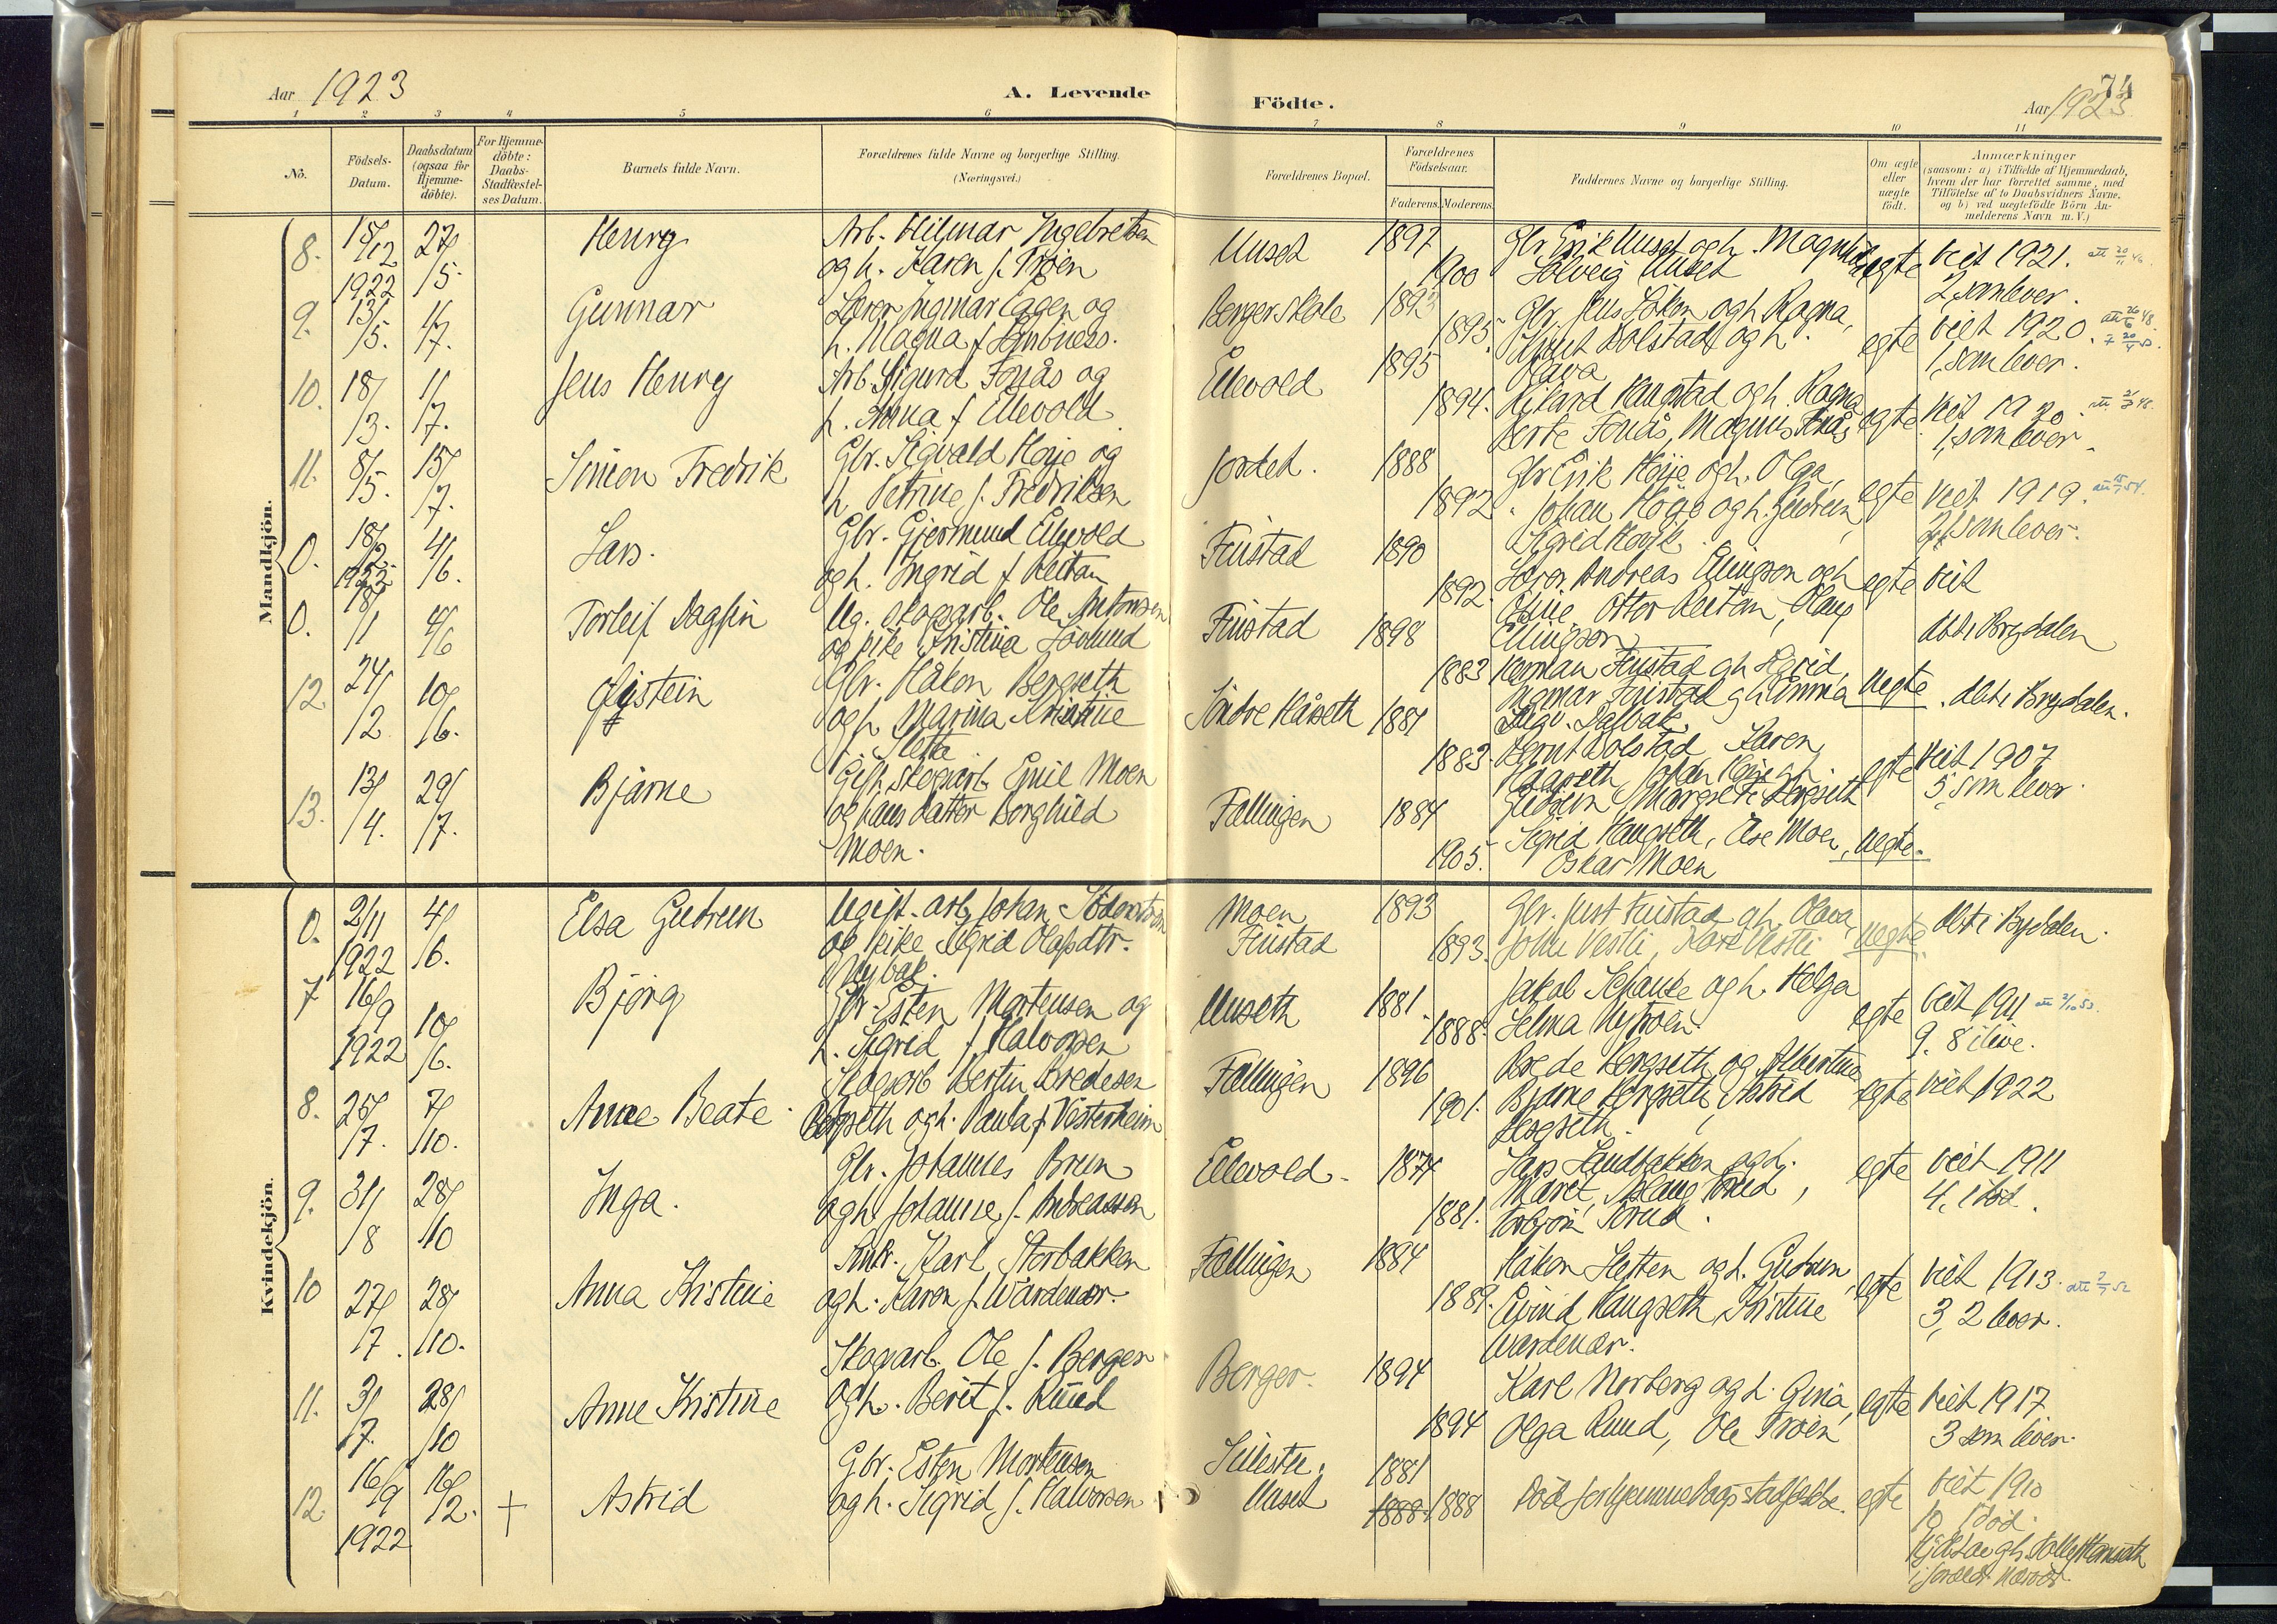 Aar 1923
A. Levende
Födte.
74
Aar 1923
1 2 3 4 5 6 7 8 9 10 11
No.
Födsels-
Datum.
Daabsdatum
(ogsaa for
Hjemme-
döbte).
For Hjemme-
döbte:
Daabs-
Stadfæstel-
ses Datum.
Barnets fulde Navn.
Forældrenes fulde Navne og borgerlige Stilling.
(Næringsvei.)
Forældrenes Bopæl.
Forældrenes
Födselsaar.
Faderens. Moderens.
Faddernes Navne og borgerlige Stilling.
Om ægte
eller
uægte
födt.
Anmærkninger
(saasom: a) i Tilfælde af Hjemmedaab,
hvem der har forrettet samme, med
Tilföielse af to Daabsvidners Navne.
og b) ved uægtefödte Börn An-
melderens Navn m.V.)
Mandkjön.
8. 15/12 1922 27/5. Henry
Arb. Hilmar Ingebretsen
og h. Karen f. Trøen
Unset 1897 1900
Gbr. Erik Unset og h. Magnhild,
Solveig Unset
egte
viet 1921.
2, som lever.
9. 13/5. 1/7. Gunnar
Lærer Ingmar Eggen og
h. Magna f.
Berger skole 1893 1895
Gbr. Jens Löken og h. Ragna,
Knut Kolstad og h.
Olava
egte
viet 1920.
1, som lever.
10. 18/3. 1/7. Jens Henry
Arb. Sigurd Fonås og
h. Anna f. Ellevold
Ellevold 1895 1894.
Rikard Haugstad og h. Ragna
Berte Fonås, Magnus Fonås
egte
viet 1920.
1, som lever.
11. 8/5. 15/7. Simon Fredrik
Gbr. Sigvald Høye og
h. Petrine f. Fredriksen
Jordet. 1888 1892.
Gbr. Erik Høye og h. Olga,
Johan Høye og h. Gudrun,
Sigrid Høye
egte
viet 1919.
2, som lever.
0. 18/12. 1922 4/6. Lars.
Gbr. Gjermund Ellevold
og h. Ingrid f. Reitan
Finstad 1890 1892.
Lærer Andreas Ellingson og h.
Oline Otter Reitan, Olaug
Ellingson
egte
viet
0. 18/1 4/6 Torleif Dagfin
Ug. skogarb. Ole Antonsen
og pike Kristina
Finstad 1898 1883
Herman Finstad og h. Sigrid,
Ingmar Finstad og h. Anna
uegte
døbt i Brydalen
døbt i Brydalen.
12. 24/12 10/6. Øystein
Gbr. Håkon Bergseth
og h. Marina Kristine
f. Sletta
Söndre Håseth 1881 1883
Bernt Kolstad, Karen
egte
viet 1907
5, som lever.
13. 13/4. 29/7. Bjarne
Gift skogarb. Emil Moen
og hans datter Borghild
Moen.
Fællingen 1884 1905.
Sigrid Haugseth, Else Moen,
Oskar Moen
uegte.
Kvindekjön.
0. 2/11 1922 4/6. Elsa Gudrun
Ugift arb. Johan Söderström
og pike Sigrid Olafsdtr.
Nybak.
Moen
Finstad 1893 1893.
Gbr. Just Finstad og h. Olava,
John Vestli, Kari Vestli
uegte.
døbt i Brydalen.
7 16/9 1922 10/6. Bjørg
Gbr. Esten Mortensen og
h. Sigrid f. Halvorsen
Unseth 1881. 1888.
Jakob Schanke og h. Helga
Selma Nytrøen.
egte
viet 1911
9. 8 ilive.
8. 25/7. 7/10. Anne Beate.
Skogarb. Kertin Bredesen
Bergseth og h. Paula f. Vesterheim
Fællingen 1896 1901.
Brede Bergseth og Albertine
Bjarne Bergseth, Astrid
Bergseth.
egte
viet 1922
9. 31/8 28/10 Inga.
Gbr. Johannes Bruun
og h. Johanne f. Andreassen
Ellevold. 1874 1881.
Lars Sandbakken og h.
Maret, Aslaug Torud,
Torbjörn Torud.
egte
viet 1911
4, 1 død.
10 27/7. 28/10. Anna Kristine
Smbr. Karl Storbakken
og h. Karen f. Wardenær.
Fællingen 1884 1889.
Håkon Sletten og h. Gudrun
Eivind Haugseth, Kristine
Wardenær.
egte
viet 1913.
3, 2 lever.
11. 3/7. 28/10 Anne Kristine
Skogarb. Ole J. Berger
og h. Berit f. Ruud
Berger. 1894 1894
Karl Norberg og h. Gina,
Olga Ruud, Ole Trøen
egte
viet 1917
3 som lever.
12. 16/9 1922 16/12. + Astrid
Gbr. Esten Mortensen
og h. Sigrid f. Halvorsen
Unset 1881 1888. 1888
Död för hjemmedaap stadfestedes.
egte
viet 1910
10 1 död.